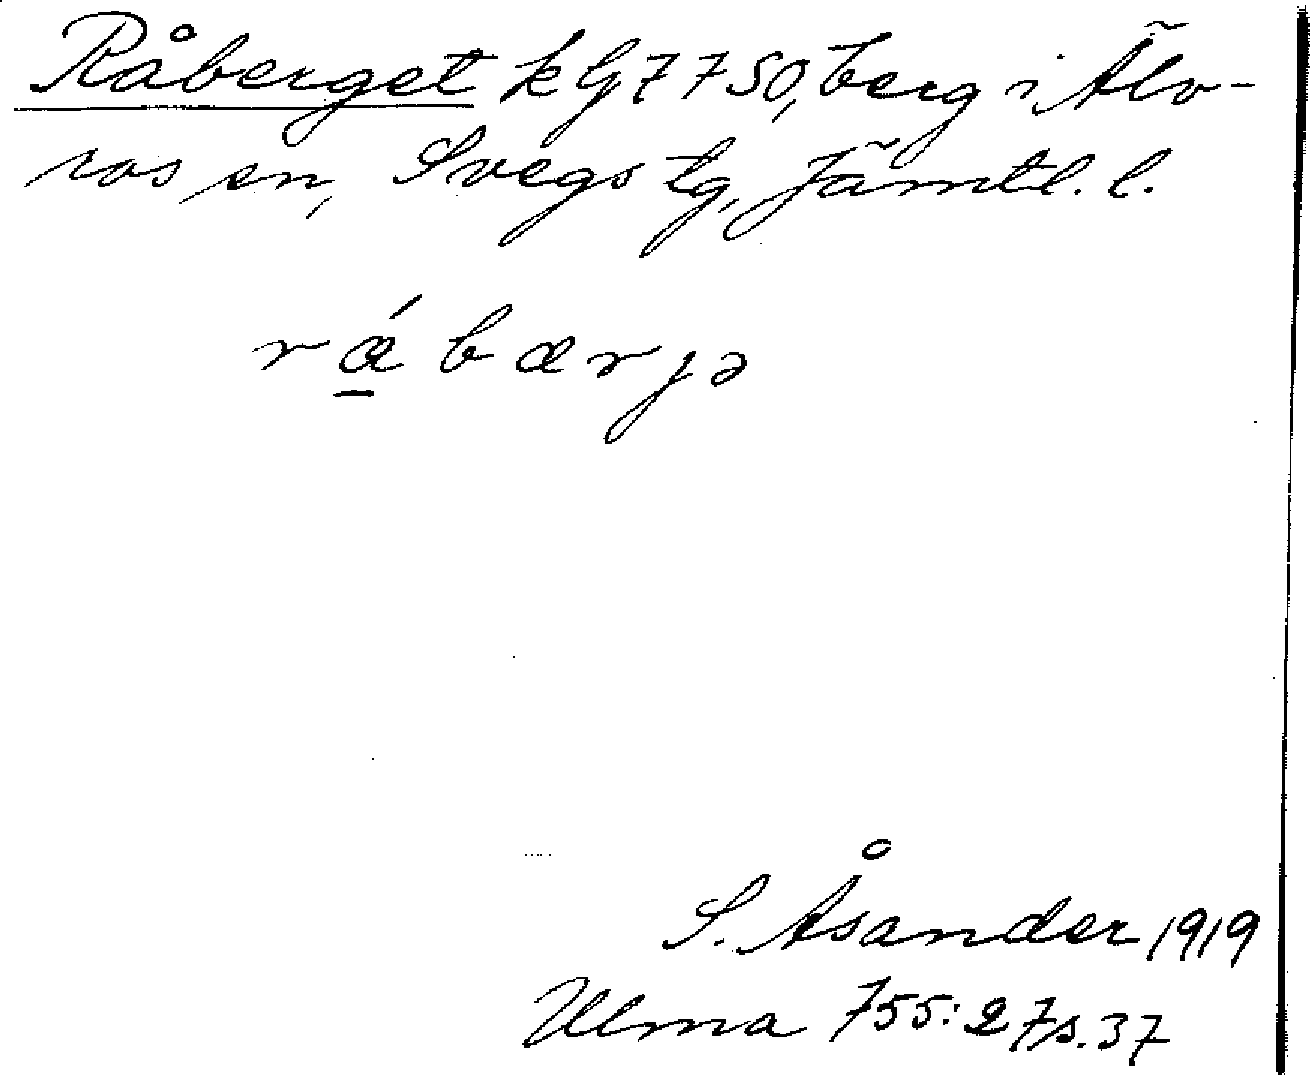 Råberget k G7750, berg i Älv-
ros sn, Svegs tg, Jämtl. l.
rǽbærjə
S. Åsander 1919
Ulma 755:27 s. 37